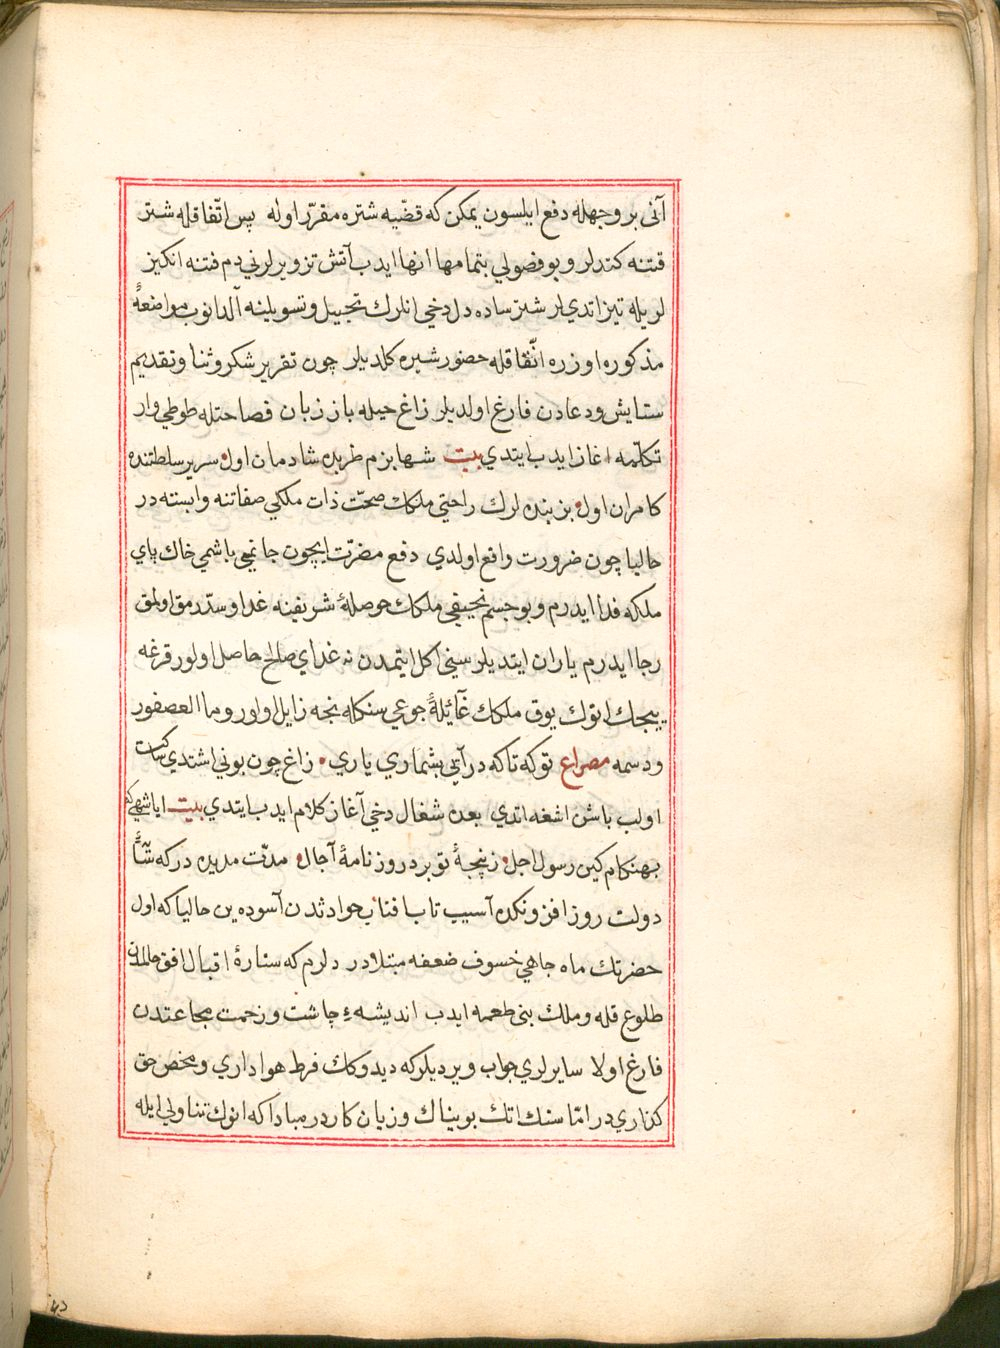 آنی بر وجهله دفع ایلسون یمکن که قضیه شتره مقرّر اوله پس اتّفاقله شتر
قتنه کتدلر و بو فضولی بتمامها انها ایدب آتش تزویرلرنی دم فتنه انکیز
لریله تیز اتدیلر شتر ساده دل دخی انلرك تجییل و تسویلینه آلدانوب مواضعۀ
مذکوره اوزره اتّفاقله حضور شیره کلدیلر چون تقریر شکر و ثنا و تقدیم
ستایش و دعادن فارغ اولدیلر زاغ حیله باز زبان فصاحتله طوطی وار
تکلّمه اغاز ایدب ایتدی بیت شها بزم طربده شادمان اول سریر سلطنتده
کامران اول بز بنده لرك راحتی ملکك صحّت ذات ملکی صفاتنه وابسته در
حالیا چون ضرورت واقع اولدی دفع مضرّت ایچون جانمی باشمی خاك پای
ملکه فدا ایدرم و بو جسم نحیفی ملکك حوصلۀ شریفنه غدا و سدّ رمق اولمق
رجا ایدرم یاران ایتدیلر سنی اکل ایتمدن نه غدای صالح حاصل اولور قرغه
ییجك اتوك یوق ملکك غآئیلۀ جوعی سنکله نجه زایل اولور وما العصفور
ودسمه مصراع تو که تا که در آیی بشماری یاری زاغ چون بونی اشتدی ساکت
اولب باش اشغه اتدی بعده شغال دخی آغاز کلام ایدب ایتدی بیت ایا شهی که
بهنکام کین رسول اجل ز پنجۀ تو برد روزنامۀ آجال مدّت مدیده در که شآ
دولت روز افزونکده آسیب تاب افتاب حوادثدن آسوده ین حالیا که اول
حضرتك ماه جاهی خسوف ضعفه مبتلادر دلرم که ستارۀ اقبال افق حالمدن
طلوع قله و ملك بنی طعمه ایدب اندیشه ء چاشت و زحمت مجاعتدن
فارغ اولا سایرلری جواب ویردیلر که دیدوکك فرط هواداری و محض حق
کذاریدر امّا سنك اتك بویناك و زیان کاردر مبادا که انوك تناولی ایله